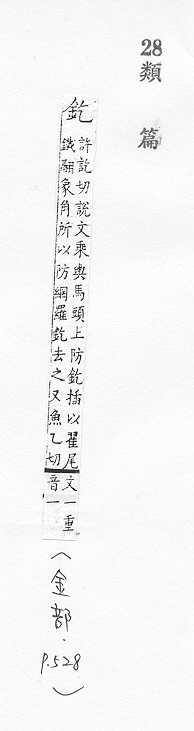 28類篇
釳
許訖切說文乘輿馬頭上防釳插以翟尾
鐵翮象角所以防綱羅釳去之又魚乙切
文一重
音一
(金部.p.528)